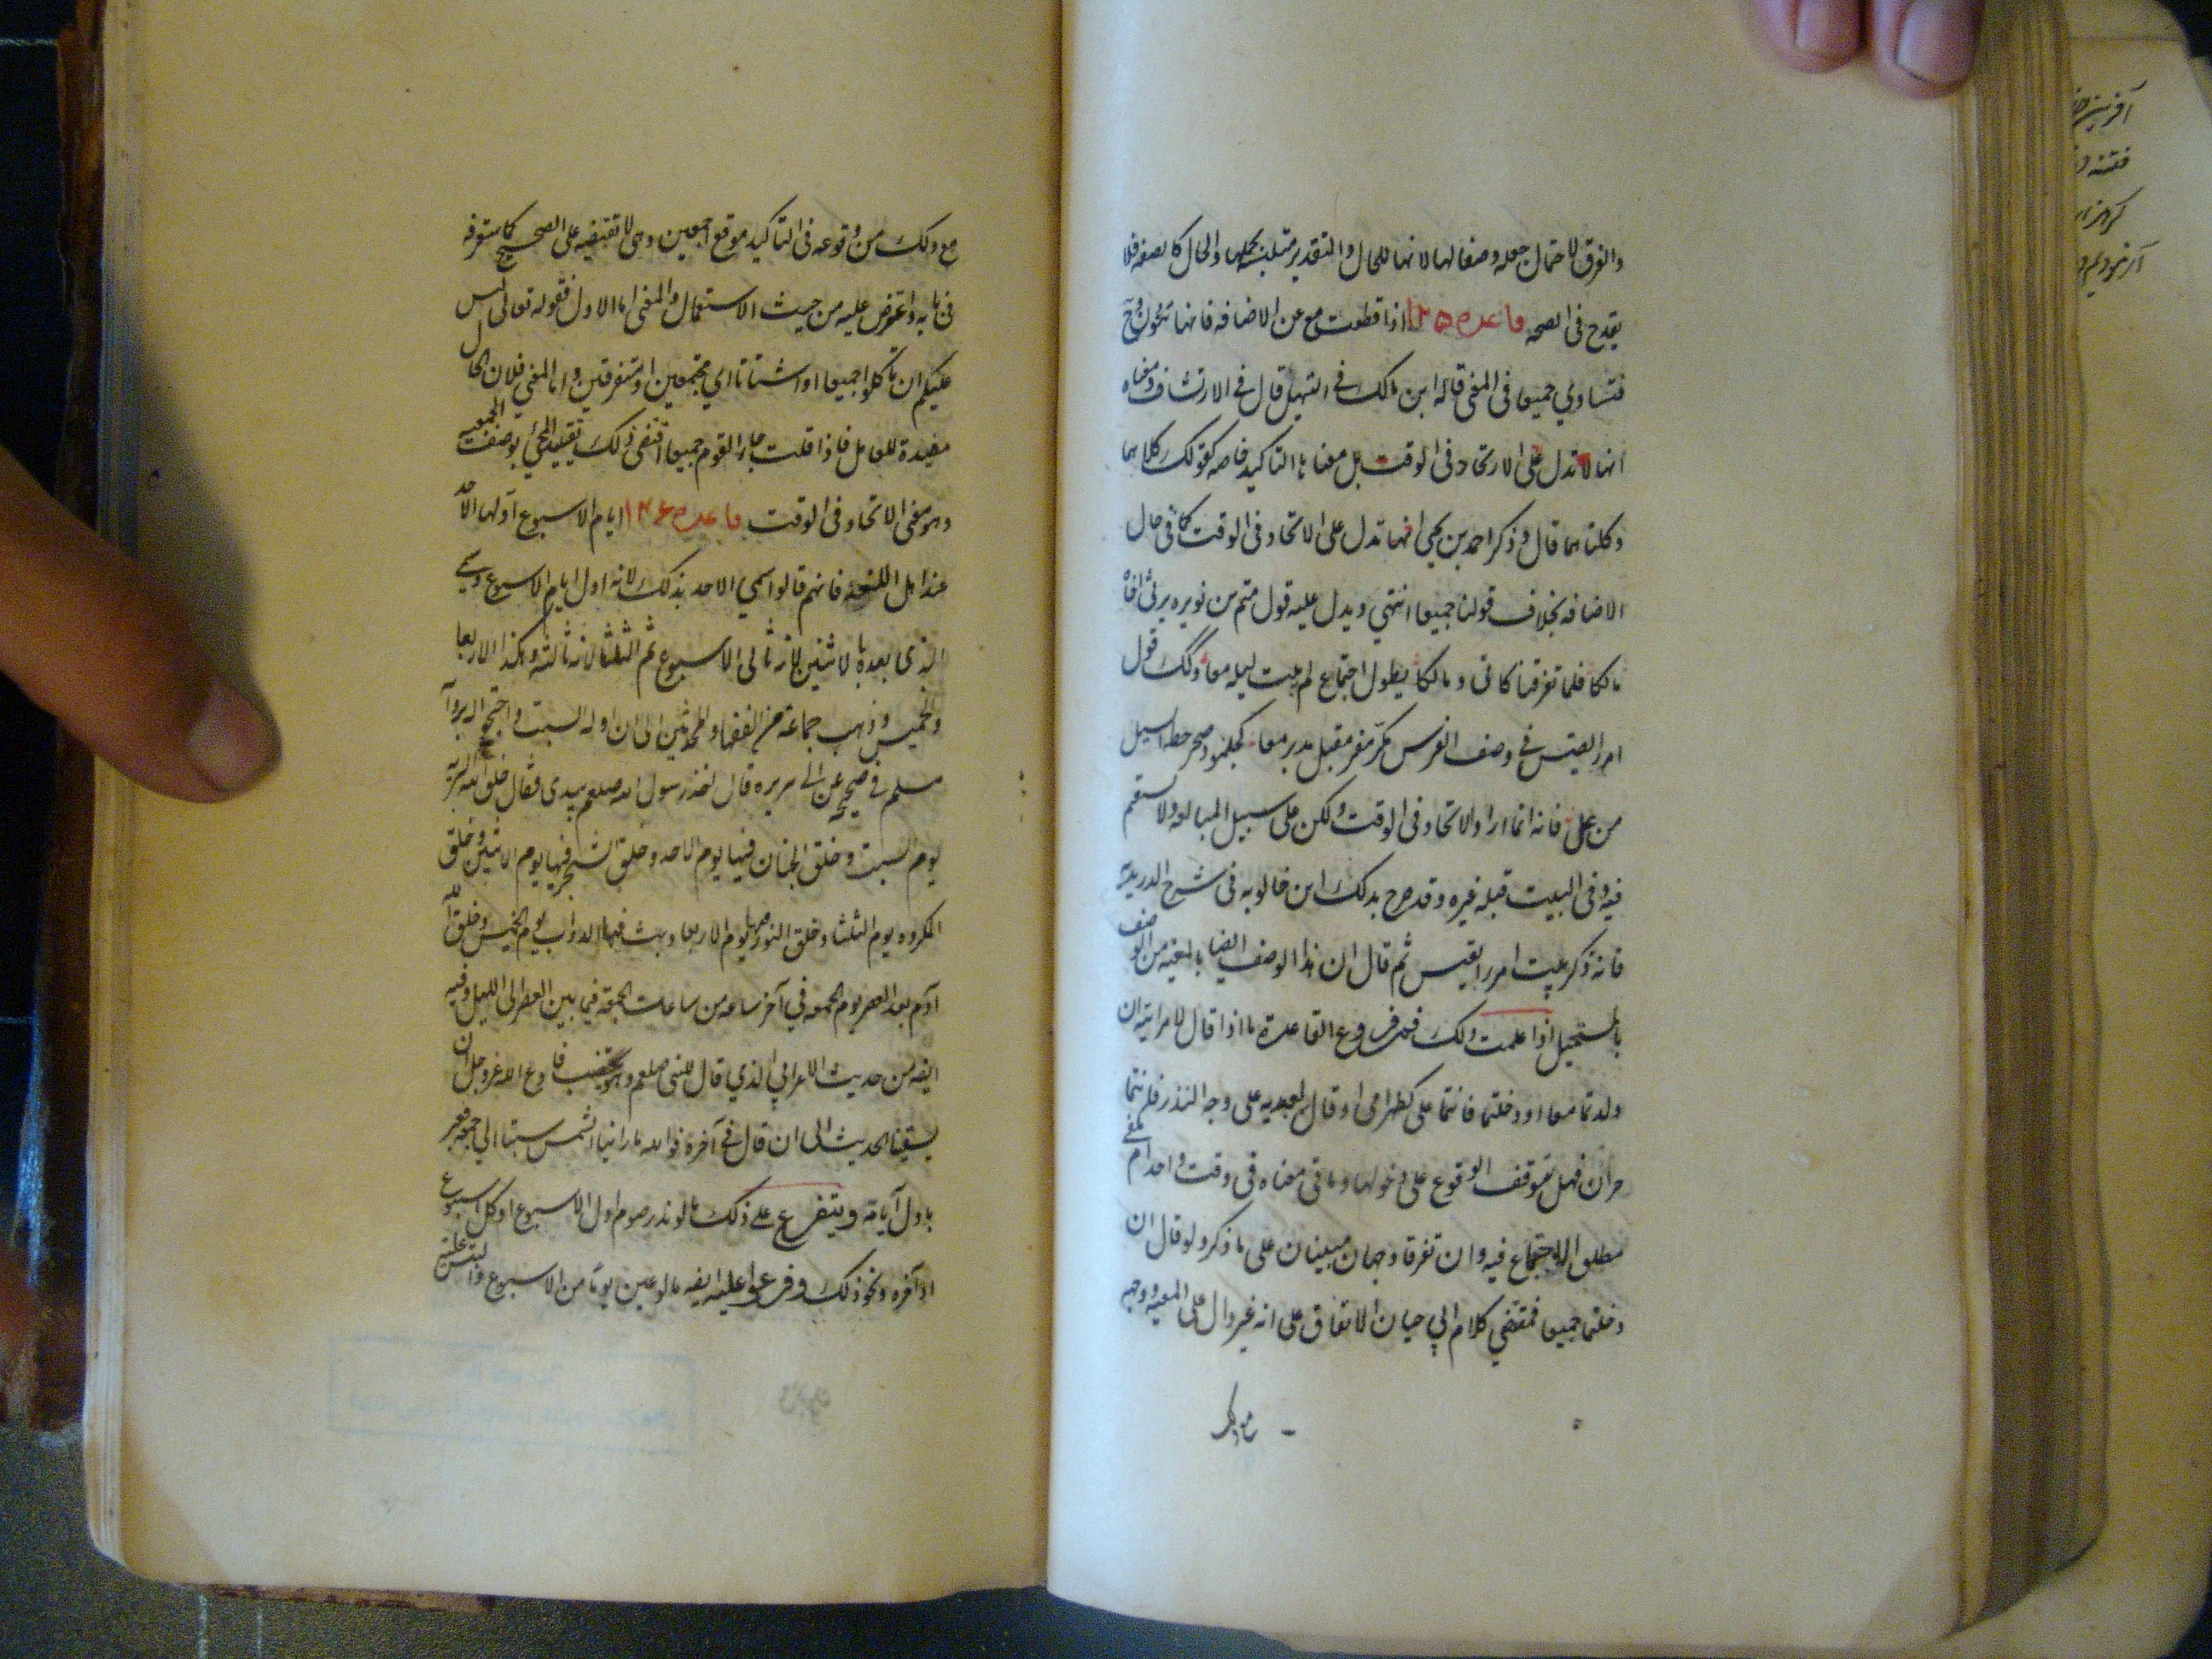 والفرق لاحتمال جعله وصفا لها لانها للحال والتقدير متلبسة بحملها والحال كالصفه فلا
يقدح فى الصحه قاعده ١٣٥ اذا قطعت مع عن الاضافه فانها تكون ح
فتساوي جميعا فى المعنى قاله ابن مالك في التسهيل قال في الارتشاف ومعناه
انها لا تدل على الاتحاد فى الوقت بل معناها التاكيد خاصه كقولك كلاهما
وكلتاهما قال وذكر احمد بن يحيى انها تدل على الاتحاد فى الوقت كما فى حال
الاضافه بخلاف قولنا جميعا انتهي ويدل عليه قول متمم بن نويره يرثى اخاه
مالكا فلما تفرقنا كانى ومالكا لطول اجتماع لم نبت ليله معا وكك قول
امرء القيس في وصف الفرس مكر مفر مقبل مدبر معا كجلمود صخر حطه السيل
من عل فانه انما اراد الاتحاد فى الوقت ولكن على سبيل المبالغه ولا يستقيم
فيه وفى البيت قبله غيره وقد صرح بذلك ابن خالويه فى شرح الدريديه
فانه ذكر بيت امرء القيس ثم قال ان هذا الوصف ايضا بالمعيه من الوصف
بالمستحيل اذا علمت ذلك فمن فروع القاعدة ما اذا قال لامراتيه ان
ولدتما معا او دخلتما فانتما على كظهر امى او قال لعبديه على وجه النذر فانتما
حران فهل يتوقف الوقوع على دخولهما وما فى معناه فى وقت واحد ام يكفي
مطلق الاجتماع فيه وان تفرقا وجهان مبنيان على ما ذكر ولو قال ان
دخلتما جميعا فمقتضي كلام ابي حيان الاتفاق على انه غير دال على المعيه ووجه
مع ذلك
مع ذلك من وقوعه فى التاكيد موقع اجمعين وهى لا تقتضيه على الصحيح كما ستعرفه
فى بابه واعترض عليه من حيث الاستعمال والمعنى اما الاول فقوله تعالى ليس
عليكم ان تاكلوا جميعا او اشتاتا اي مجتمعين او متفرقين واما المعني فلان الحال
مقيدة للعامل فاذا قلت جاء القوم جميعا اقتضى ذلك تقييد المجئ بوصف الجمعيه
وهو معنى الاتحاد فى الوقت قاعده ١٣٦ ايام الاسبوع اولها الاحد
عند اهل اللغه فانهم قالوا سمي الاحد بذلك لانه اول ايام الاسبوع وسمي
الذى بعده بالاثنين لانه ثانى الاسبوع ثم الثلثا لانه ثالثه وهكذا الاربعا
والخميس وذهب جماعة من الفقها والمحدثين الى ان اوله السبت واحتج له بما رواه
مسلم في صحيحه عن ابي هريره قال اخذ رسول الله صلعم بيدى فقال خلق الله التربه
يوم السبت وخلق الجبال فيها يوم الاحد وخلق الشجر فيها يوم الاثنين وخلق
المكروه يوم الثلثا وخلق النور يوم الاربعا وبث فيها الدواب يوم الخميس وخلق الله
آدم بعد العصر يوم الجمعه في آخر ساعه من ساعات الجمعة فيما بين العصر الى الليل وفيه
ايضه من حديث الاعرابي الذي قال للنبى صلعم وهو يخطب فادع الله عز وجل ان
يسقينا الحديث الى ان قال في آخره فوالله ما راينا الشمس سبتا الي جمعه فعبر
باول ايامه ويتفرع على ذلك ما لو نذر صوم اول الاسبوع او كل اسبوع
او آخره ونحو ذلك وفرعوا عليه ايضه ما لو عين يوما من الاسبوع والتبس عليه